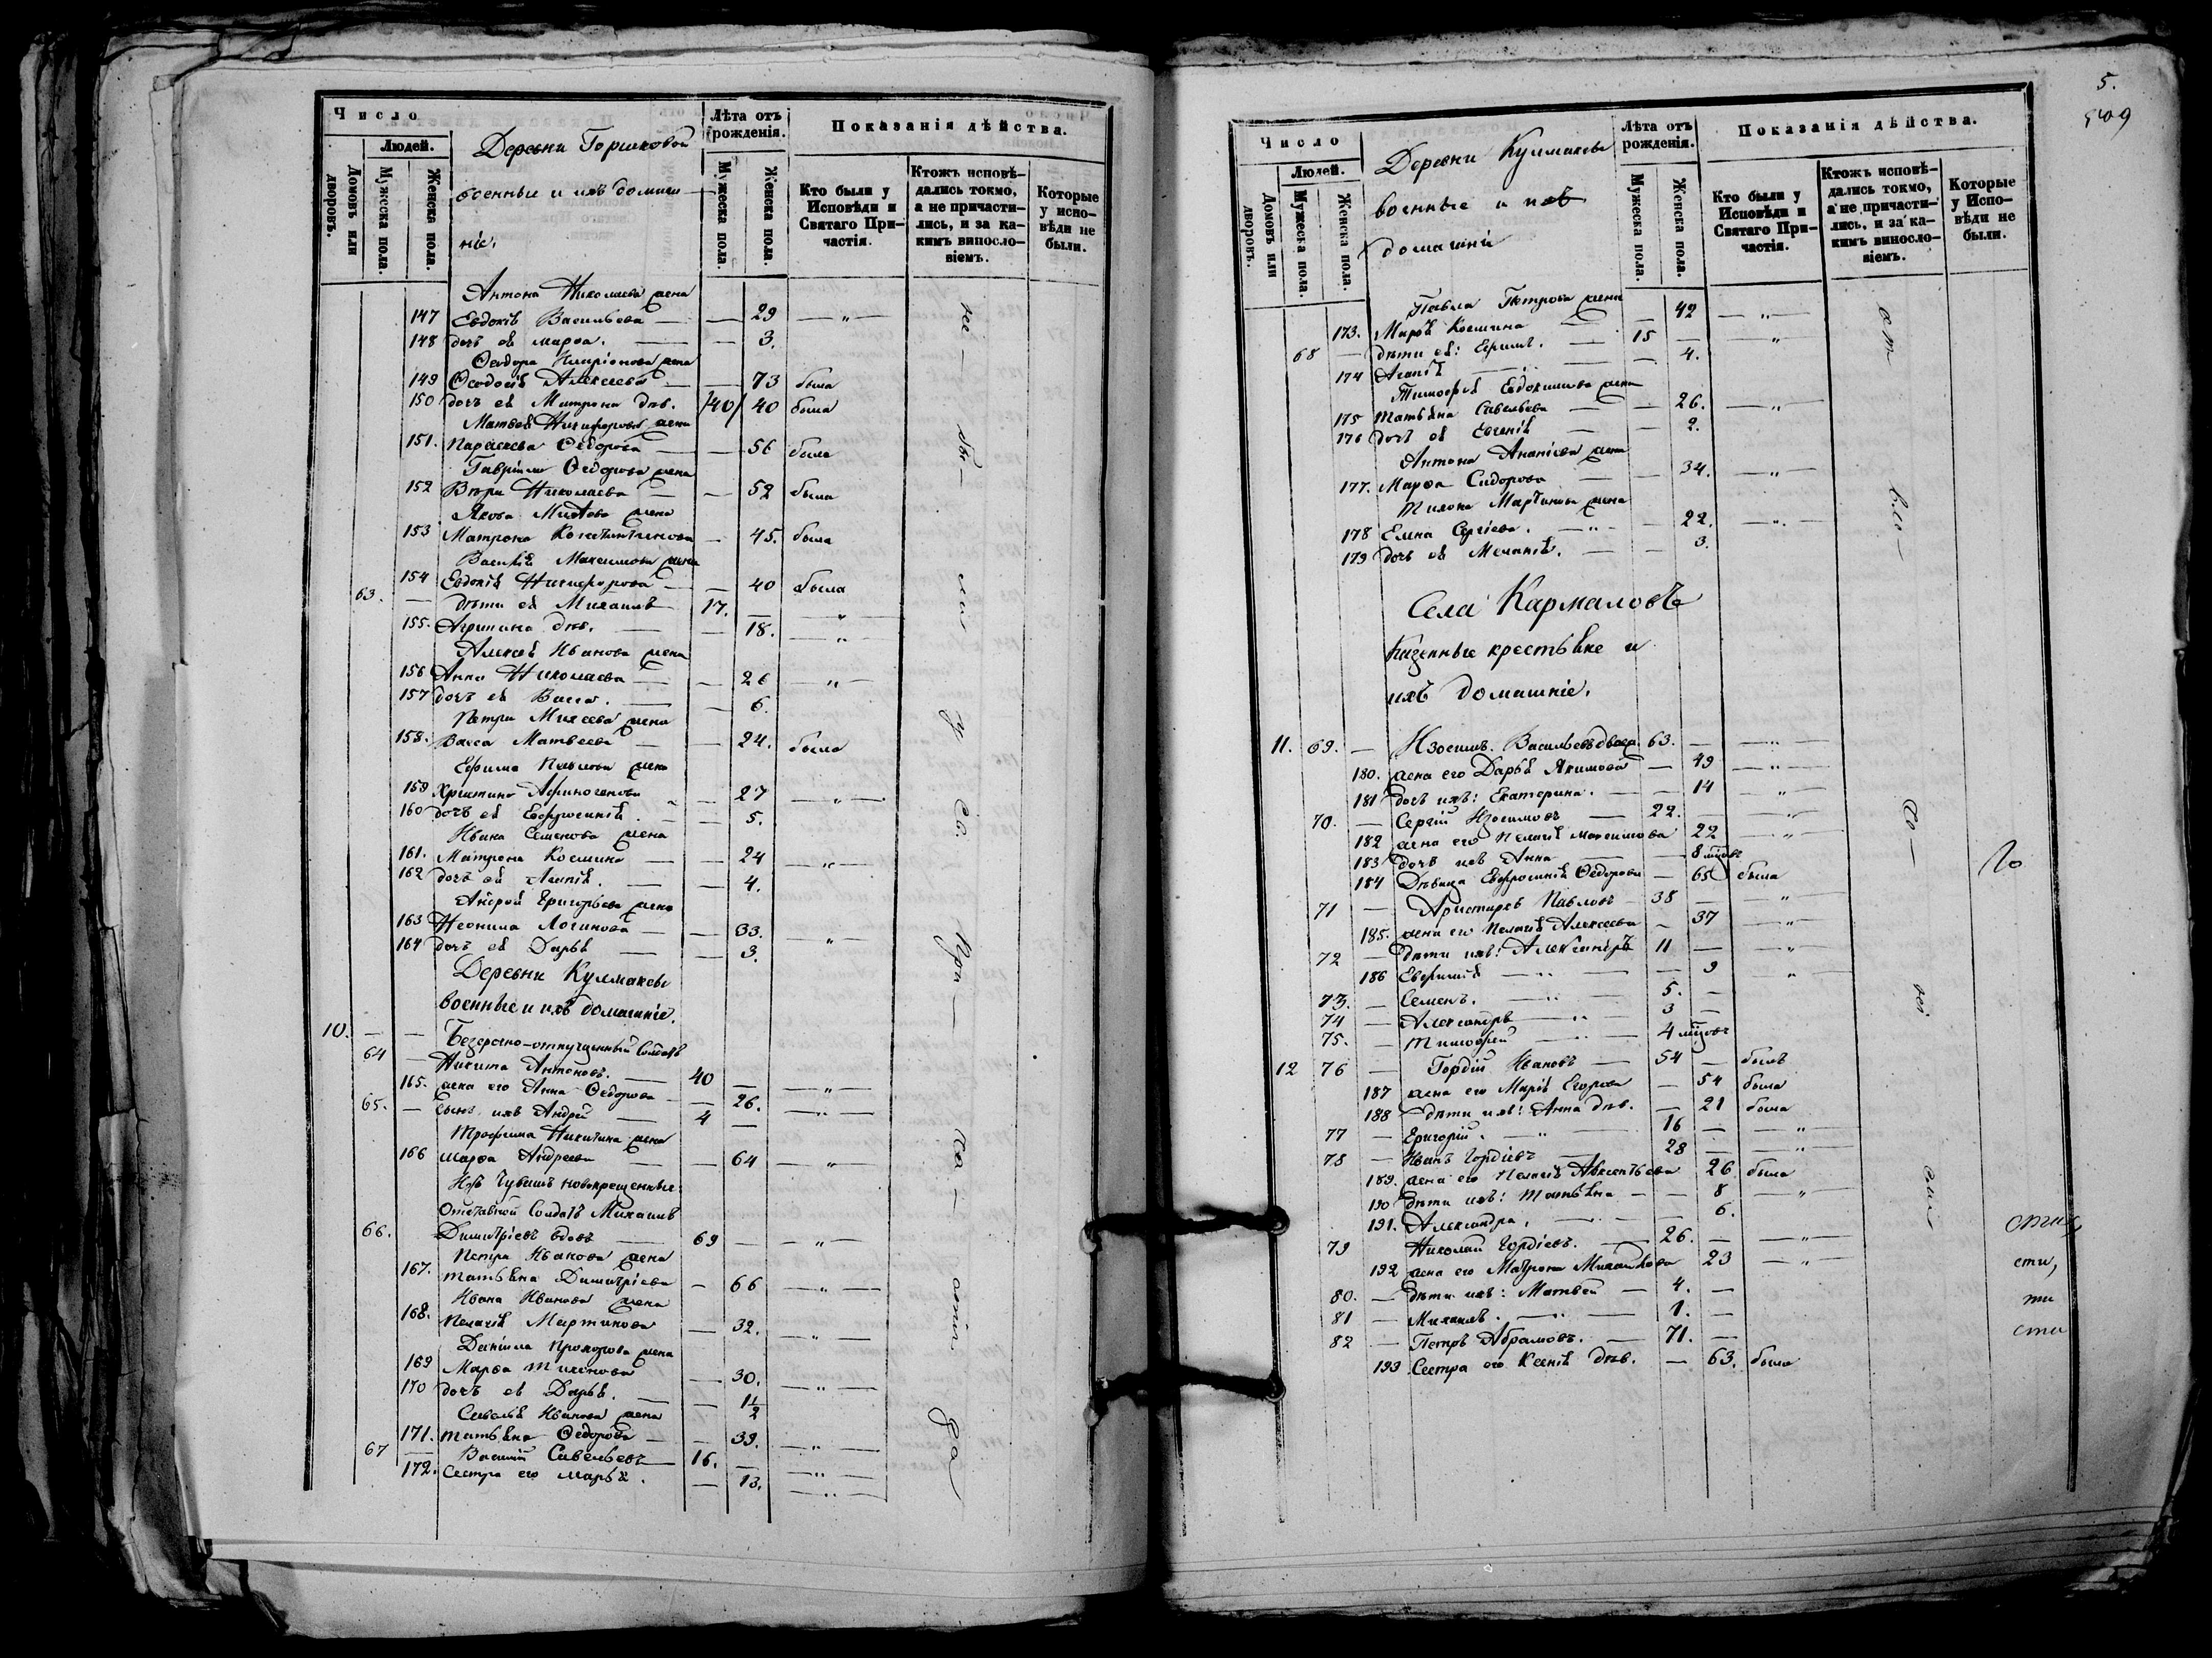 Число
Людей.
Домовъ или дворовъ.
Мужеска пола.
Женска пола.
Деревни Горшковой
военные и ихъ домаш
ніе.
Лѣта отъ рожденія.
Мужеска пола.
Женска пола.
Показанія дѣйства.
Кто были у Исповѣди и Святаго Причастія.
Ктожъ исповѣдались токмо, а не причастились, и за какимъ винословіемъ.
Которые у исповѣди не были.
Антона Николаева жена
147 Евдокія Васильева — — 29 — „ —
148 дочь ея Марѳа. — — 3.
Ѳеодора Иларіонова жена
149 Ѳеодосія Алексѣева — — 73 была
150 дочь ея Матрона дѣв. /40/ 40 была
Матвея Никифорова жена
151. Параскева Ѳедорова — — 56 была
Гавріила Ѳедорова жена
152 Вѣра Николаева — — 52 была
Якова жена
153 Матрона Константинова — 45. была
Василія Максимова жена
154 Евдокія Никифорова — — 40 была
63. — дѣти ея Михаилъ 17. — — „ —
155. Агрипина дѣв. — — 18. — „ —
Алексѣя Иванова жена
156 Анна Николаева — — 26 — „ —
157 дочь ея Васса. — — 6.
Петра Михеева жена
158. Васса Матвеева — — 24. была
Ефима Павлова жена
159 Христина Афиногенова — 27 — „ —
160 дочь ея Евфросинія. — — 5.
Ивана Семенова жена
161. Матрона Космина — — 24 — „ —
162 дочь ея Агапія. — — 4.
Андрея Григорьева жена
163 Неонила Логинова — — 33. — „ —
164 дочь ея Дарья — — 3.
Деревни Кулмаксы
военные и ихъ домашніе.
10. — — Безсрочно-отпущенный солдатъ
64 — Никита Антоновъ. — 40 — — „ —
165. жена его Анна Ѳедорова — — 26. — „ —
65. — Сынъ ихъ Андрей — 4 —
Трофима Никитина жена
166 Марѳа Андреева — — 64 — „ —
Изъ Чувашъ новокрещенные:
Отставной Солдатъ Михаилъ
66. Димитріевъ вдовъ — 69 — — „ —
Петра Иванова жена
167. Татьяна Димитріева — 66 — „ —
Ивана Иванова жена
168. Пелагія Мартинова — 32. — „ —
Даніила Прохорова жена
169 Марѳа Тихонова — 30. — „ —
170 дочь ея Дарья. — — 1½
Савелья Иванова жена
171. Татьяна Ѳедорова — — 39. — „ —
67 — Василій Савельевъ — 16. — — „ —
172. Сестра его Марья. — 13. — „ —
5.
509
Число
Людей.
Домовъ или дворовъ.
Мужеска пола.
Женска пола.
Деревни Кулмаксы
военные и ихъ
домашніе
Лѣта отъ рожденія.
Мужеска пола.
Женска пола.
Показанія дѣйства.
Кто были у Исповѣди и Святаго Причастія.
Ктожъ исповѣдались токмо, а не причастились, и за какимъ винословіемъ.
Которые у Исповѣди не были.
Павла Петрова жена
173. Марія Космина — — 42 — „ —
68 — дѣти ея: Ефимъ. — 15 — — „ —
174 Агапія — — 4.
Тимофея Евдокимова жена
175 Татьяна Савельева — — 26. — „ —
176 дочь ея Евгенія — — 2.
Антона Ананіева жена
177. Марѳа Сидорова — — 34. — „ —
Тихона Мартинова жена
178 Елена Сергіева. — „ — — 22. — „ —
179 дочь ея Меланія. — — 3.
Села Кармаловъ
Казенные крестьяне и
ихъ домашніе.
11. 69. — Изосимъ Васильевъ 63. — — „ —
180. жена его Дарья Якимова — 49 — „ —
181 дочь ихъ: Екатерина. — — 14 — „ —
70. — Сергій Изосимовъ — 22. — „ —
182 жена его Пелагія Максимова 22 — „ —
183 дочь ихъ Анна — — 8 мѣсяцъ
184 Дѣвица Евфросинія Ѳедорова — 65 была
71 — Аристархъ Павловъ — 38 — — „
185. жена его Пелагія Алексѣева — 37 — „ —
72 — дѣти ихъ: Александръ 11 — — „
186 Евфимія — „ — — 9 — „
73. — Семенъ. — „ — 5. —
74 — Александръ — „ — 3 —
75. — Тимофей — „ — 4 мѣсяцъ
12 76 — Гордій Ивановъ — 54 — былъ
187 жена его Марія Егорова — 54 была
188 дѣти ихъ: Анна дѣв. — 21 была
77 — Григорій. — „ — 16 — — „ —
78 — Иванъ Гордіевъ — 28 — — „ —
189. жена его Пелагія Авксентьева 26 была
190 дѣти ихъ: Татьяна — — 8 — „
191. Александра. — — 6.
79 Николай Гордіевъ. — 26. — — „ —
192 жена его Матрона Михайлова 23 — „
80. — дѣти ихъ: Матвей — 4. —
81 — Михаилъ. — „ — 1. —
82 — Петръ Абрамовъ. — 71. —
193 Сестра его Ксенія дѣв. — 63. была